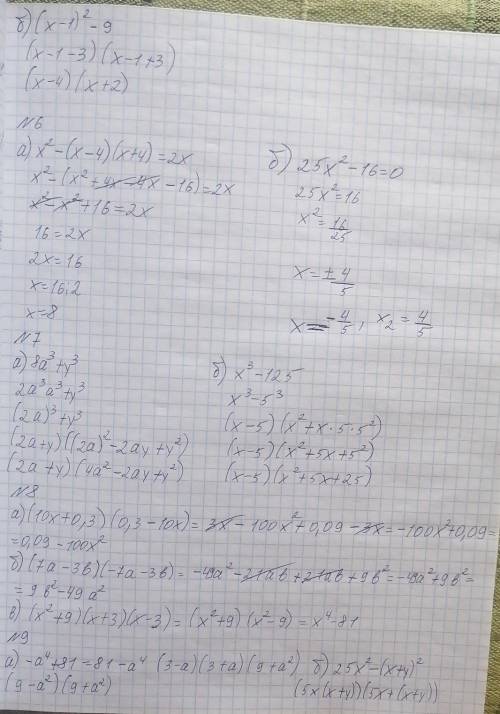 б) (x-1)²-9
(x-1-3)(x-1+3)
(x-4)(x+2)
№6
а) x²-(x-4)(x+4)=2x
x²-(x²+4x-4x-16)=2x
x²-x²+16=2x
16=2x
2x=16
x=16:2
x=8
б) 25x²-16=0
25x²=16
x²=16/25
x=±4/5
x=-4/5, x₂=4/5
№7
а) 8a³+y³
2a³a³+y³
(2a)³+y³
(2a+y)((2a)²-2ay+y²)
(2a+y)(4a²-2ay+y²)
б) x³-125
x³-5³
(x-5)(x²+x·5·5²)
(x-5)(x²+5x+5²)
(x-5)(x²+5x+25)
№8
а) (10x+0,3)(0,3-10x)=3x-100x²+0,09-3x=-100x²+0,09=
=0,09-100x²
б) (7a-3b)(-7a-3b)=-49a²-21ab+21ab+9b²=-49a²+9b²=
=9b²-49a²
в) (x²+9)(x+3)(x-3)=(x²+9)(x²-9)=x⁴-81
№9
а) -a⁴+81=81-a⁴ (3-a)(3+a)(9+a²)
(9-a²)(9+a²)
б) 25x²-(x+y)²
(5x(x+y))(5x+(x+y))